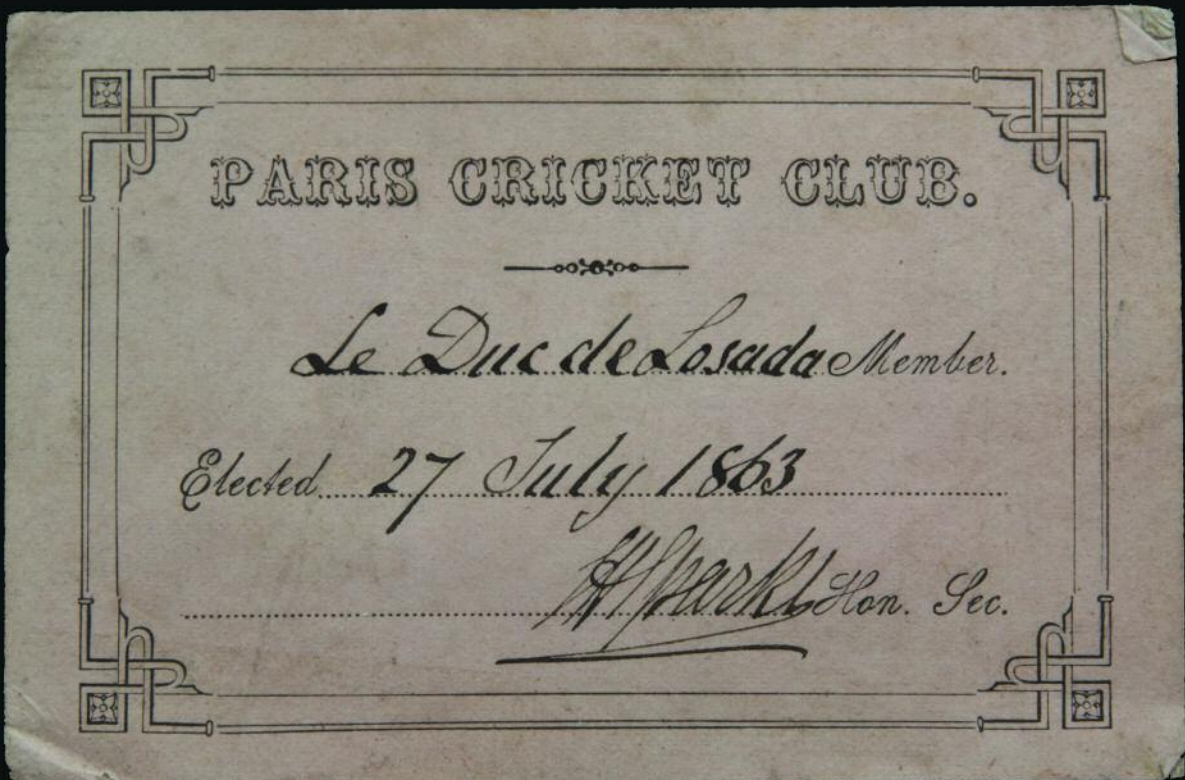 PARIS CRICKET CLUB.
Le Duc de Losada Member.
Elected 27 July 1863
Hon. Sec.